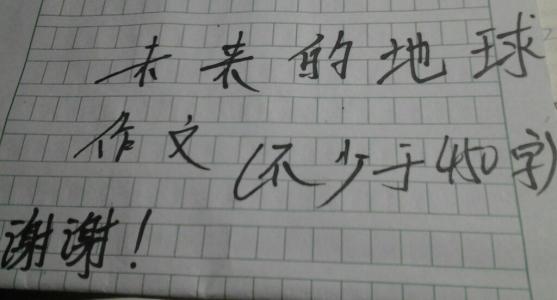 未来的地球
作文(不少于450字)
谢谢!